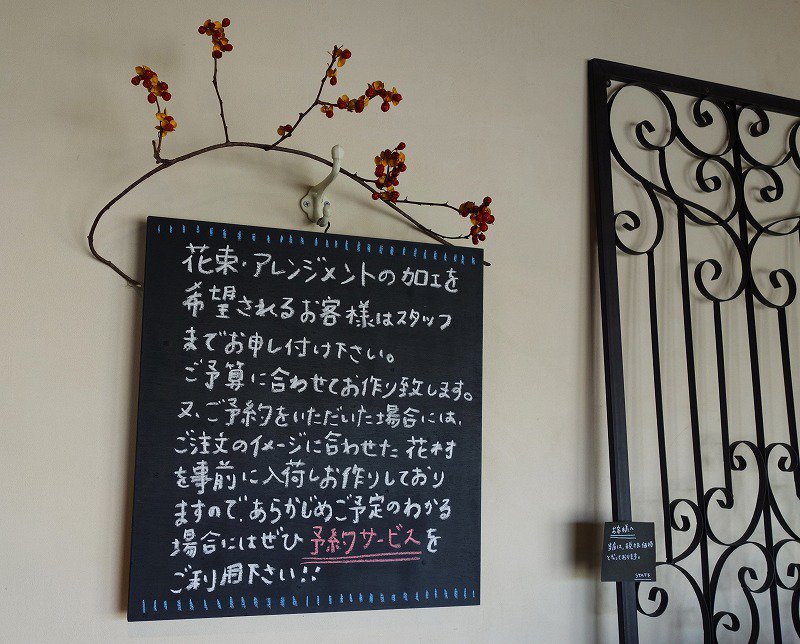 花束・アレンジメントの加工を
希望されるお客様はスタッフ
までお申し付け下さい。
ご予算に合わせてお作り致します。
又、ご予約をいただいた場合には、
ご注文のイメージに合わせた花材
を事前に入荷しお作りしており
ますので、あらかじめご予定のわかる
場合にはぜひ予約サービスを
ご利用下さい!!
お客様へ
当店は、税抜価格
となっております。
STAFF